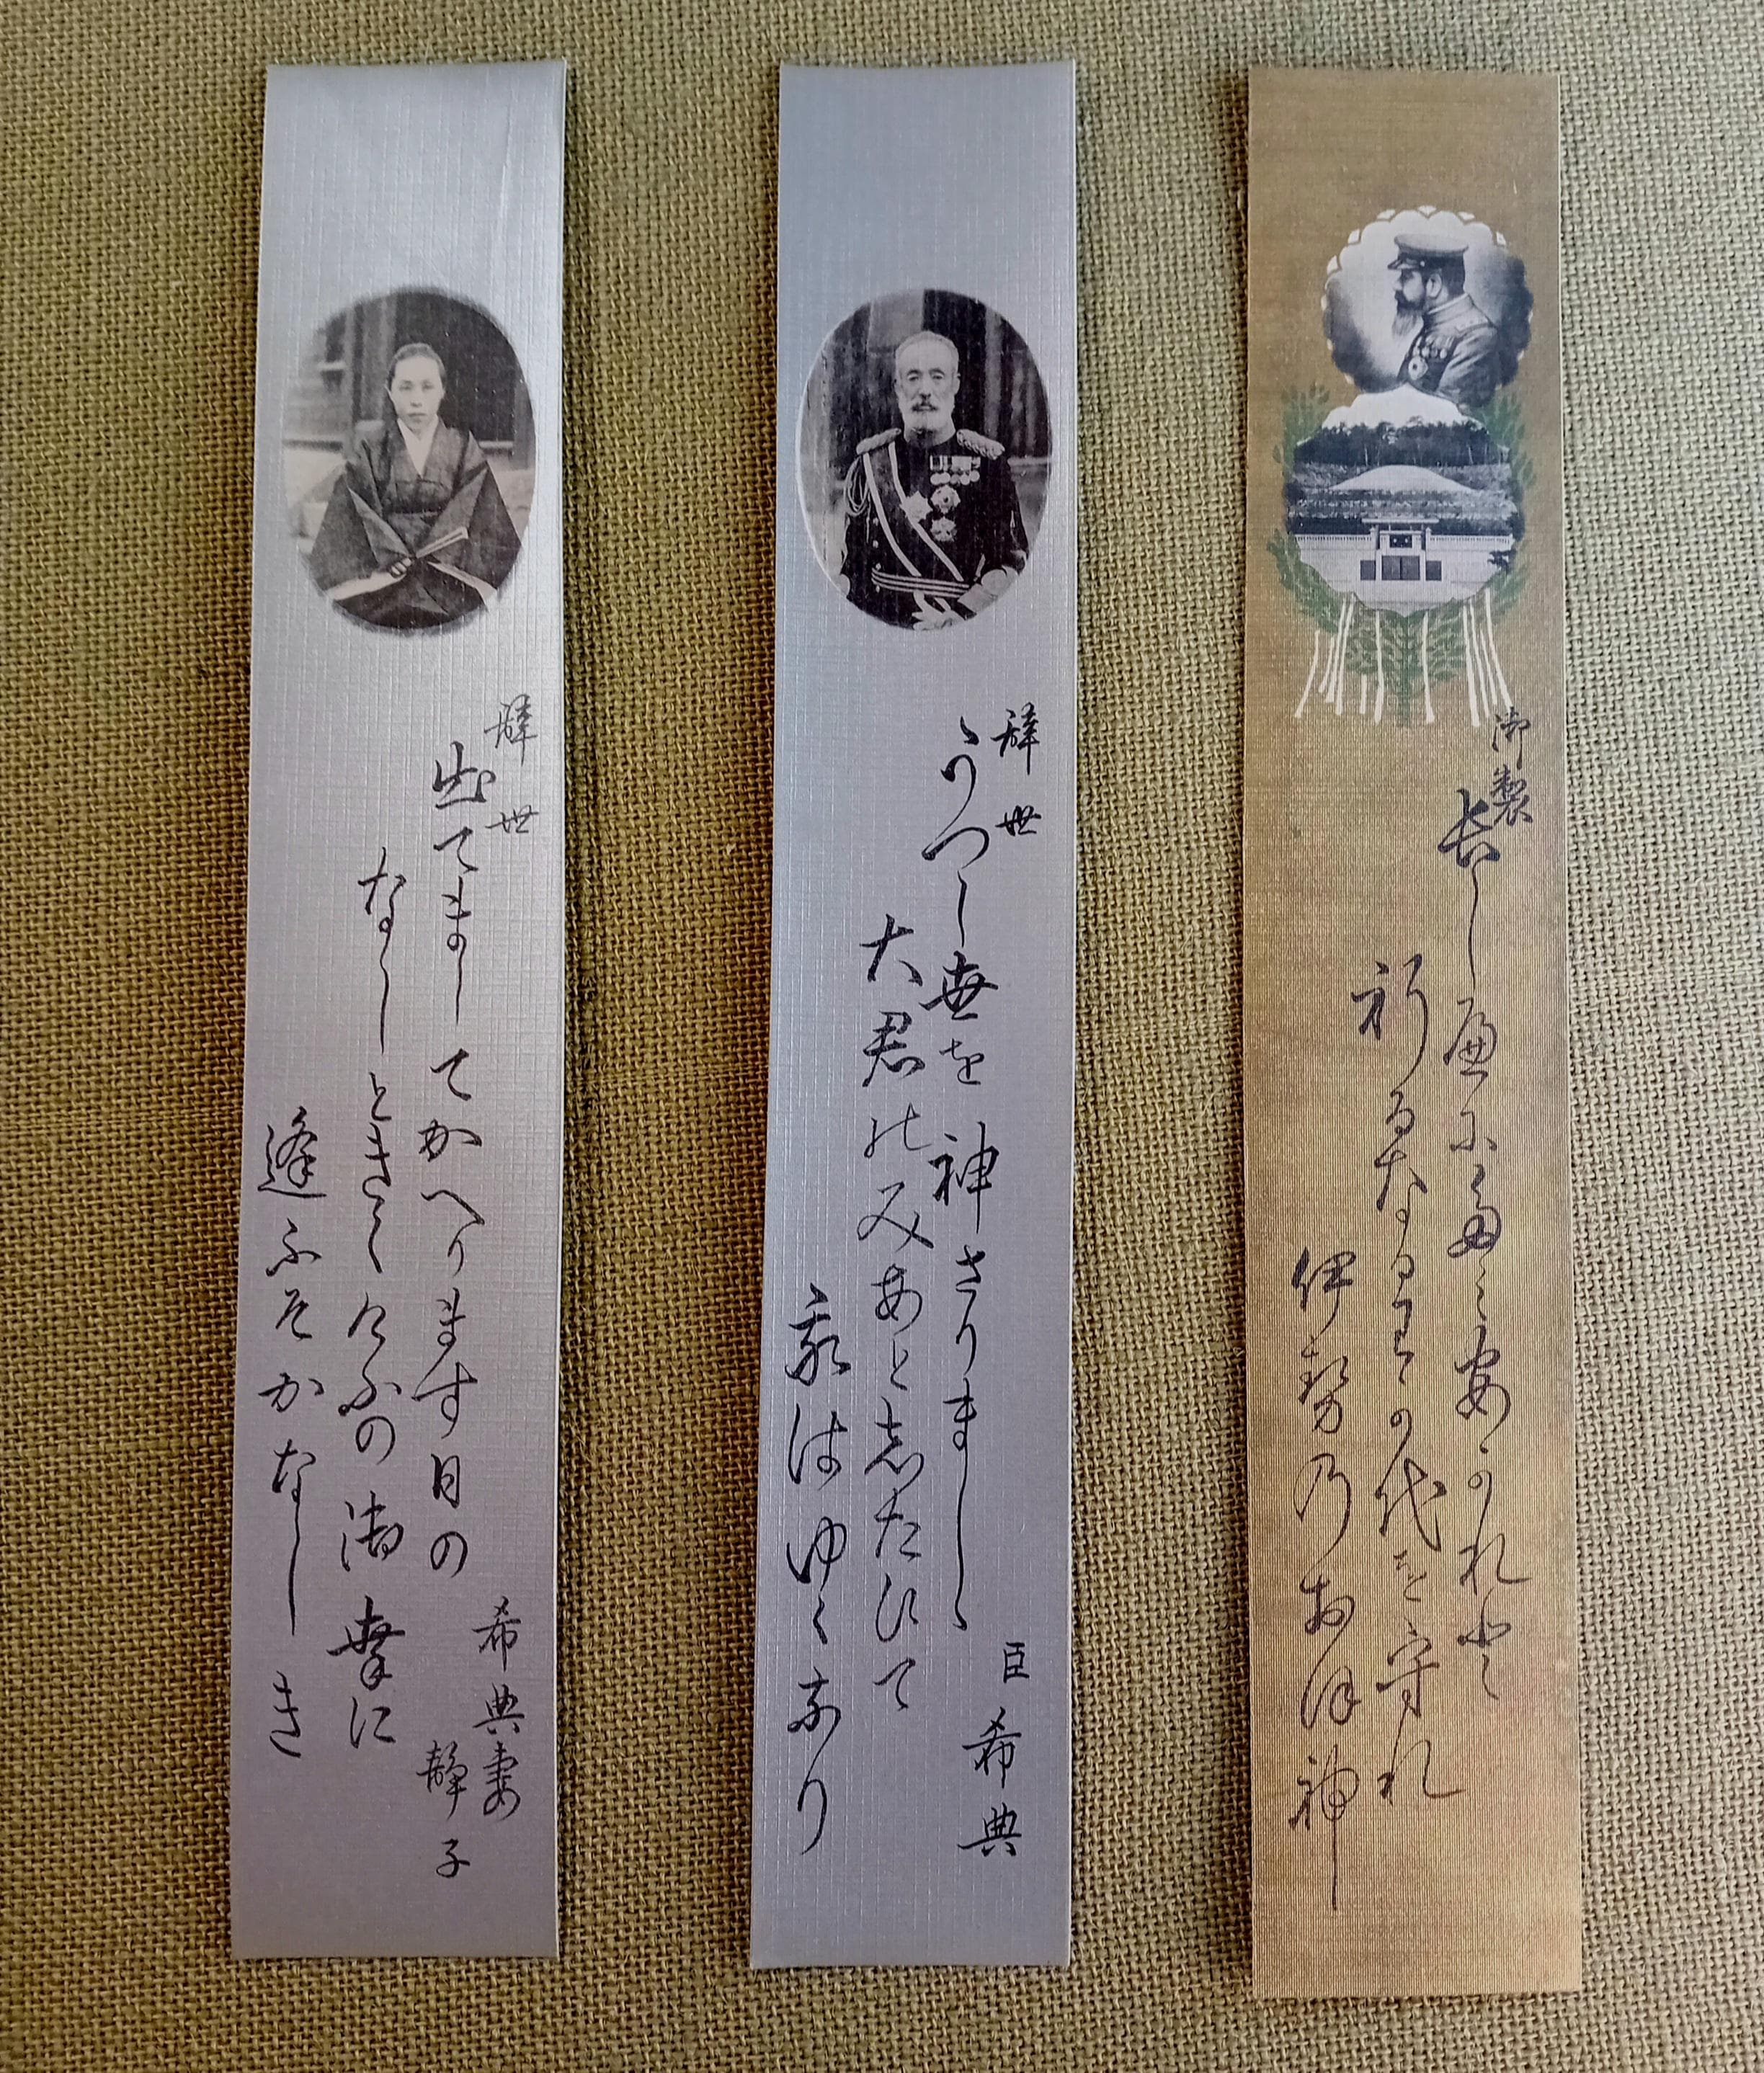 御製
長しへに多ミ安かれと
祈るなるわか代を守れ
伊勢乃おほ神
辞世
うつし世を神さりましゝ
大君のみあと志たひて
我はゆくなり
臣 希典
辞世
出てましてかへります日の
なしときくけふの御幸に
逢ふそかなしき
希典妻
静子